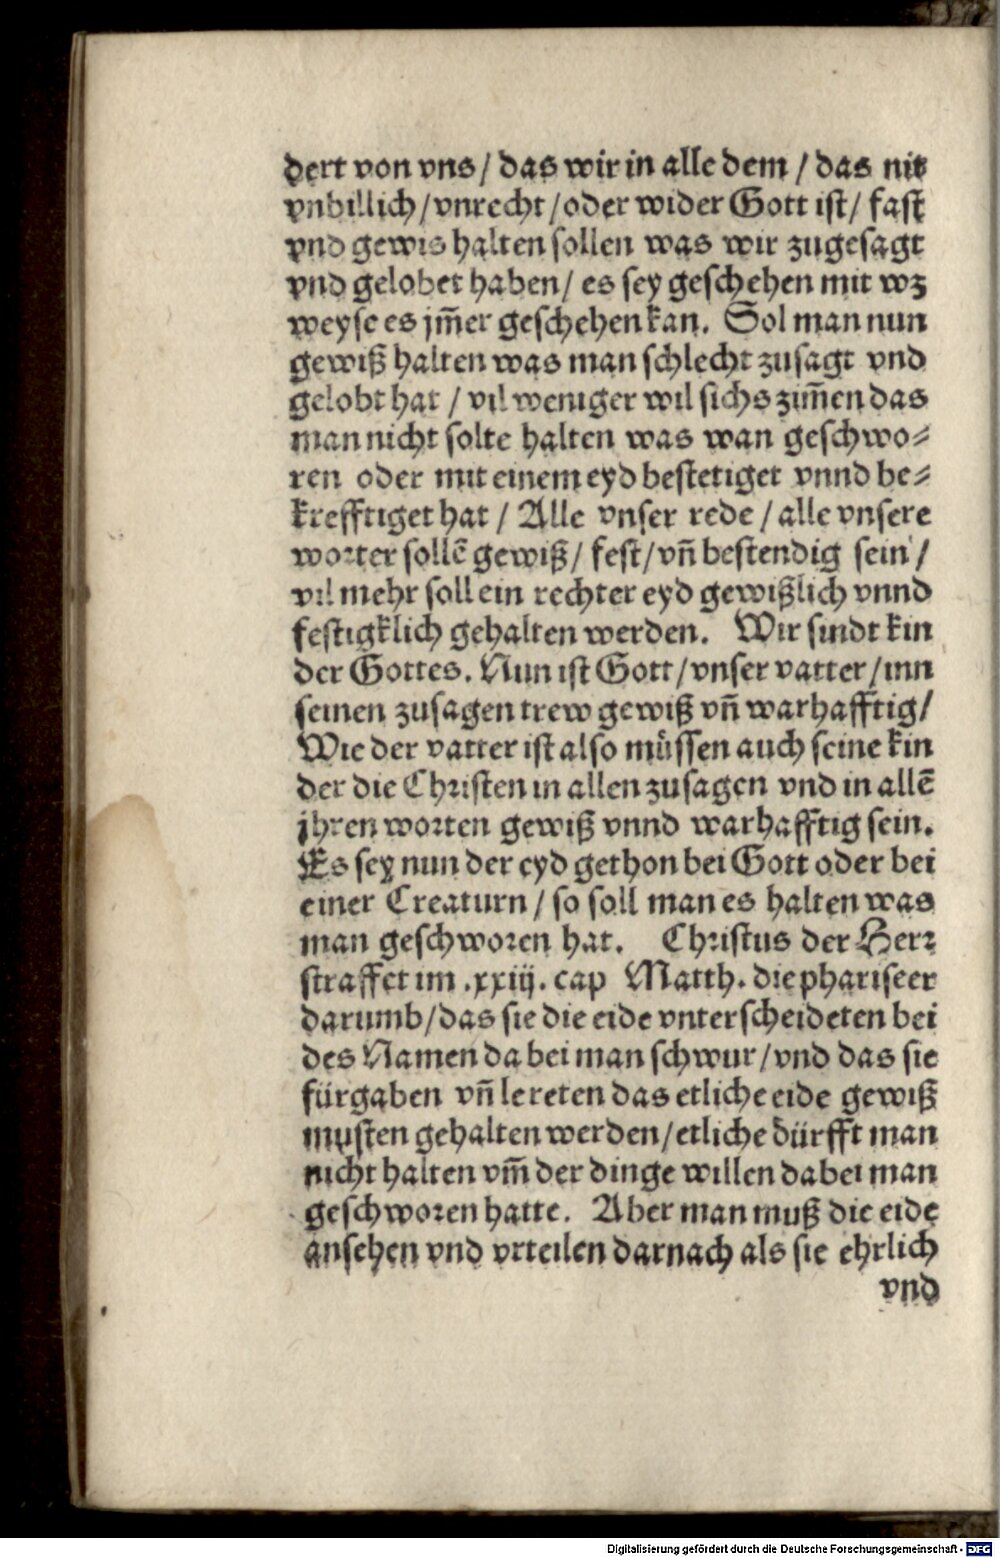 dert von vns / das wir in alle dem / das nit
vnbillich / vnrecht / oder wider Gott ist / fast
vnd gewis halten sollen was wir zugesagt
vnd gelobet haben / es sey geschehen mit wz
weyse es jm̄er geschehen kan. Sol man nun
gewiß halten was man schlecht zusagt vnd
gelobt hat / vil weniger wil sichs zim̄en das
man nicht solte halten was wan geschwo⸗
ren oder mit einem eyd bestetiget vnnd be⸗
krefftiget hat / Alle vnser rede / alle vnsere
worter sollē gewiß / fest / vn̄ bestendig sein /
vil mehr soll ein rechter eyd gewißlich vnnd
festigklich gehalten werden. Wir sindt kin
der Gottes. Nun ist Gott / vnser vatter / inn
seinen zusagen trew gewiß vn̄ warhafftig /
Wie der vatter ist also müssen auch seine kin
der die Christen in allen zusagen vnd in allē
jhren worten gewiß vnnd warhafftig sein.
Es sey nun der eyd gethon bei Gott oder bei
einer Creaturn / so soll man es halten was
man geschworen hat. Christus der Herr
straffet im .xxiij. cap Matth. die phariseer
darumb / das sie die eide vnterscheideten bei
des Namen da bei man schwur / vnd das sie
fürgaben vn̄ lereten das etliche eide gewiß
musten gehalten werden / etliche dürfft man
nicht halten vm̄ der dinge willen dabei man
geschworen hatte. Aber man muß die eide
ansehen vnd vrteilen darnach als sie ehrlich
vnd
Digitalisierung gefördert durch die Deutsche Forschungsgemeinschaft - DFG